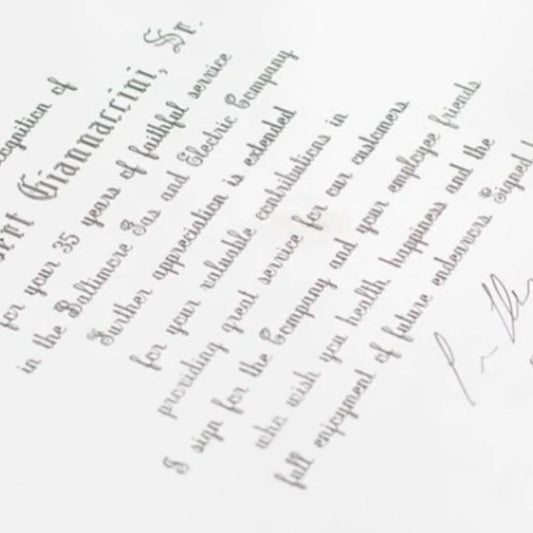 cognition of
ent Giannaccini, Sr.
for your 35 years of faithful service
in the Baltimore Gas and Electric Company
Further appreciation is extended
for your valuable contributions in
providing great service for our customers
I sign for the Company and your employee friends
who wish you health, happiness and the
full enjoyment of future endeavors Signed